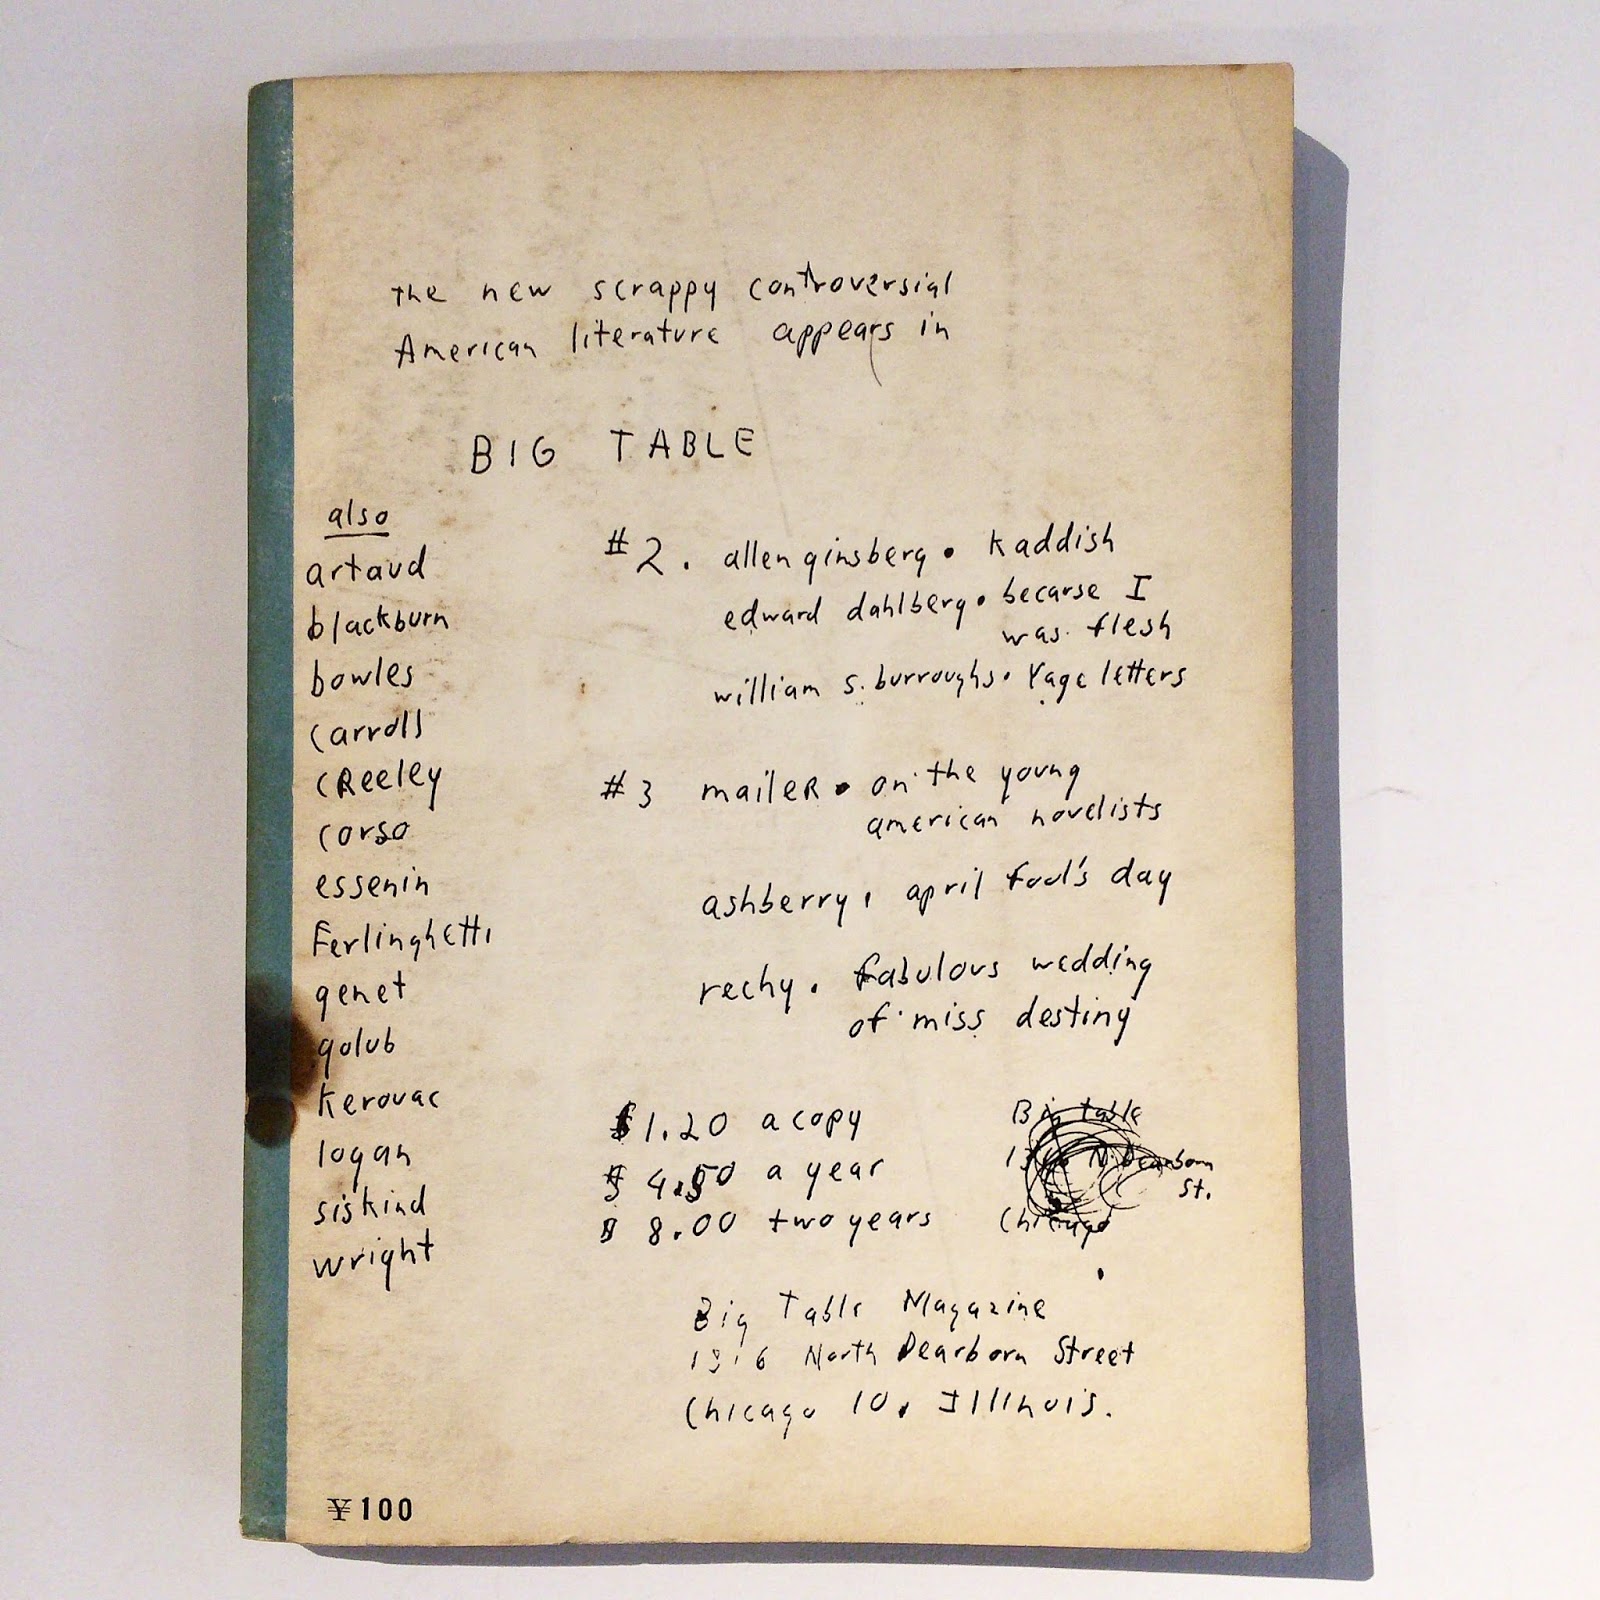 the new scrappy controversial
American literature appears in
BIG TABLE
also
artaud
blackburn
bowles
carroll
cReeley
corso
essenin
Ferlinghetti
genet
golub
kerouac
logan
siskind
wright
#2. allen ginsberg • kaddish
edward dahlberg • becarse I
was flesh
william s. burroughs • Yage letters
#3 maileR • on the young
american novelists
ashberry, april fool's day
rechy. fabulous wedding
of miss destiny
$1.20 a copy
$4.50 a year
$8.00 two years
Big table
N. Dearborn
St.
Chicago
Big Table Magazine
1316 North Dearborn Street
Chicago 10, Illinois.
¥100